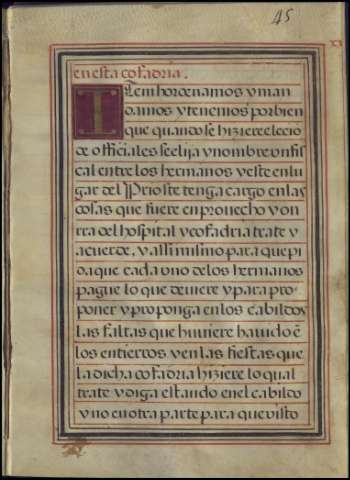 45
en esta cofadria.
Item hordenamos y man
damos y tenemos por bien
que quando se hiziere elecio
de officiales se elija y nombre vn fis
cal entre los hermanos y este en lu
gar del Prioste tenga cargo en las
cosas que fuere en prouecho y on
rra del hospital y cofadria trate y
acuerde, y assi mismo para que pi
da que cada vno delos hermanos
pague lo que deuiere y para pro-
poner y proponga enlos cabildos
las faltas que huuiere hauido ē
los entierros y en las fiestas que
la dicha cofadria hiziere lo qual
trate y diga estando en el cabildo
y no en otra parte para que visto